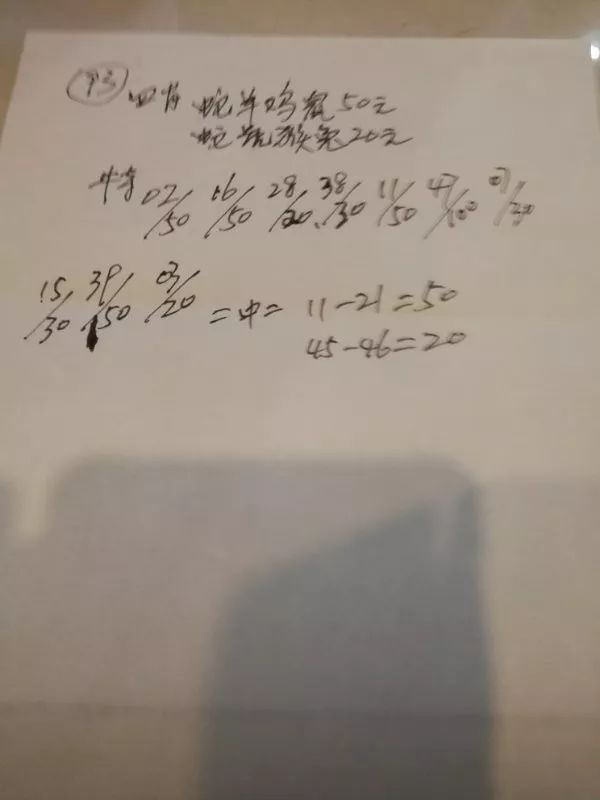 四肖 蛇羊鸡鼠50元
蛇鼠猴兔20元
特 02/50 16/50 28/20 38/30 11/50 47/100 07/30
15/30 39/50 03/20 =中= 11-21=50
45-46=20